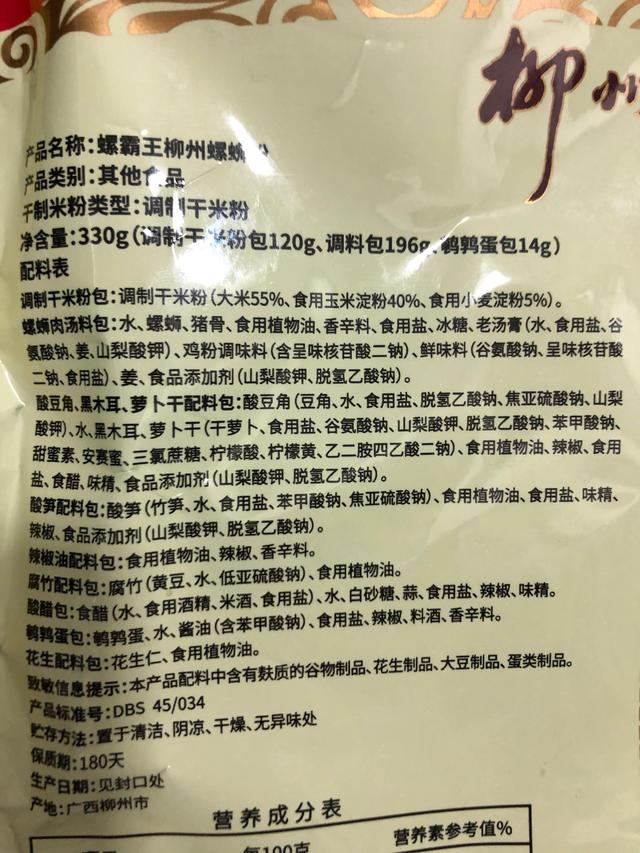 柳州
产品名称：螺霸王柳州螺蛳粉
产品类别：其他食品
干制米粉类型：调制干米粉
净含量：330g（调制干米粉包120g、调料包196g、鹌鹑蛋包14g）
配料表
调制干米粉包：调制干米粉（大米55%、食用玉米淀粉40%、食用小麦淀粉5%）。
螺蛳肉汤料包：水、螺蛳、猪骨、食用植物油、香辛料、食用盐、冰糖、老汤膏（水、食用盐、谷
氨酸钠、姜、山梨酸钾）、鸡粉调味料（含呈味核苷酸二钠）、鲜味料（谷氨酸钠、呈味核苷酸
二钠、食用盐）、姜、食品添加剂（山梨酸钾、脱氢乙酸钠）。
酸豆角、黑木耳、萝卜干配料包：酸豆角（豆角、水、食用盐、脱氢乙酸钠、焦亚硫酸钠、山梨
酸钾）、水、黑木耳、萝卜干（干萝卜、食用盐、谷氨酸钠、山梨酸钾、脱氢乙酸钠、苯甲酸钠、
甜蜜素、安赛蜜、三氯蔗糖、柠檬酸、柠檬黄、乙二胺四乙酸二钠）、食用植物油、辣椒、食用
盐、食醋、味精、食品添加剂（山梨酸钾、脱氢乙酸钠）。
酸笋配料包：酸笋（竹笋、水、食用盐、苯甲酸钠、焦亚硫酸钠）、食用植物油、食用盐、味精、
辣椒、食品添加剂（山梨酸钾、脱氢乙酸钠）。
辣椒油配料包：食用植物油、辣椒、香辛料。
腐竹配料包：腐竹（黄豆、水、低亚硫酸钠）、食用植物油。
酸醋包：食醋（水、食用酒精、米酒、食用盐）、水、白砂糖、蒜、食用盐、辣椒、味精。
鹌鹑蛋包：鹌鹑蛋、水、酱油（含苯甲酸钠）、食用盐、辣椒、料酒、香辛料。
花生配料包：花生仁、食用植物油。
致敏信息提示：本产品配料中含有麸质的谷物制品、花生制品、大豆制品、蛋类制品。
产品标准号：DBS 45/034
贮存方法：置于清洁、阴凉、干燥、无异味处
保质期：180天
生产日期：见封口处
产地：广西柳州市
营养成分表
每100克 营养素参考值%